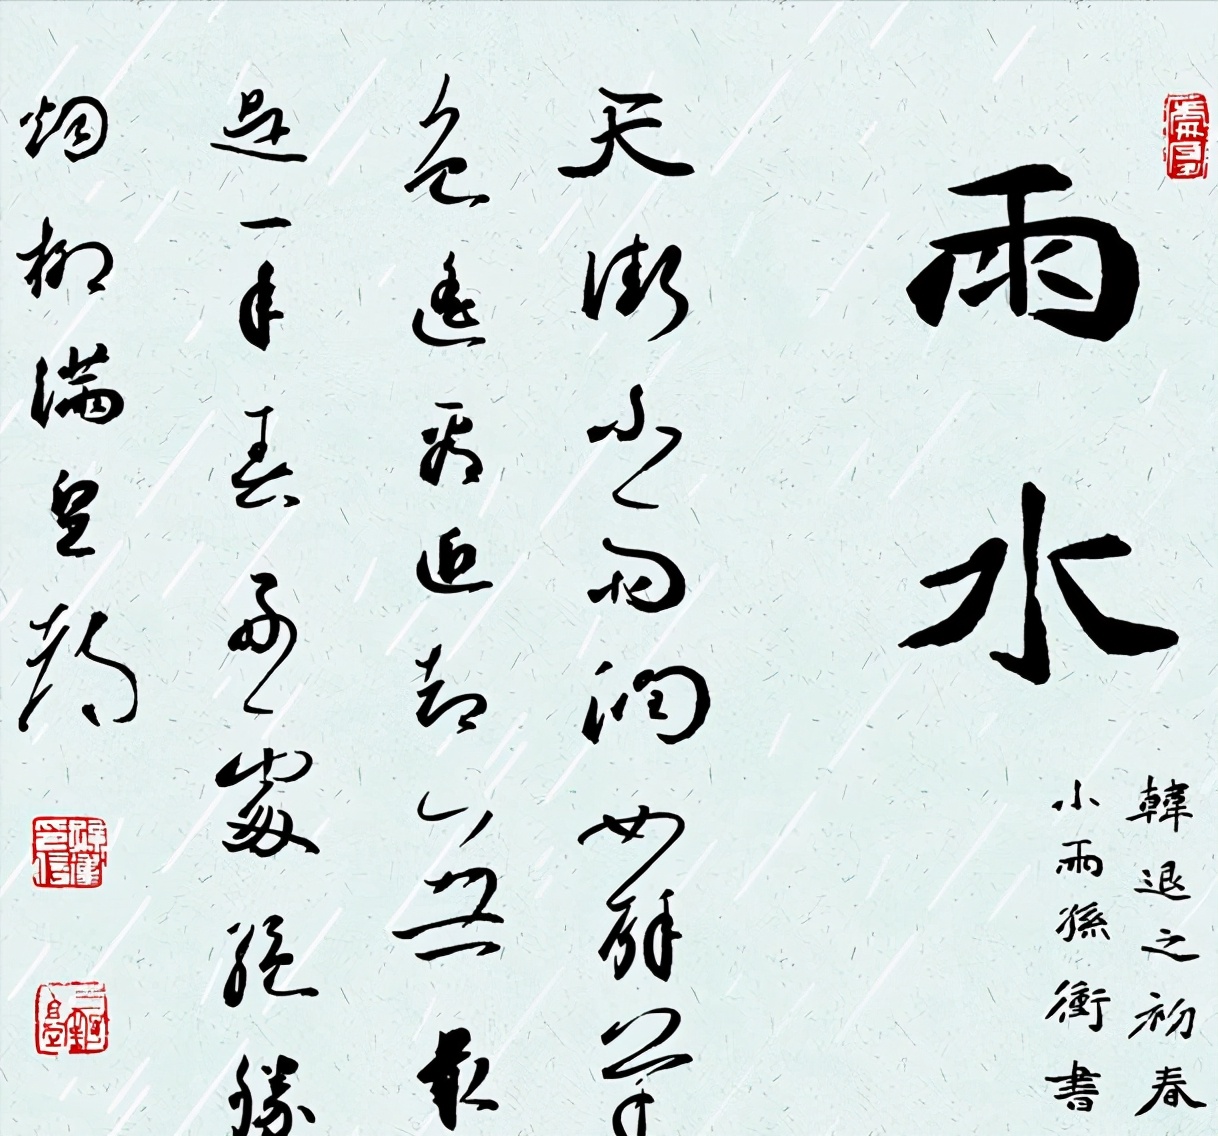 雨水
韓退之初春
小雨孫衝書
天街小雨潤如酥草
色遥看近却無最
是一年春好處絶勝
烟柳滿皇都